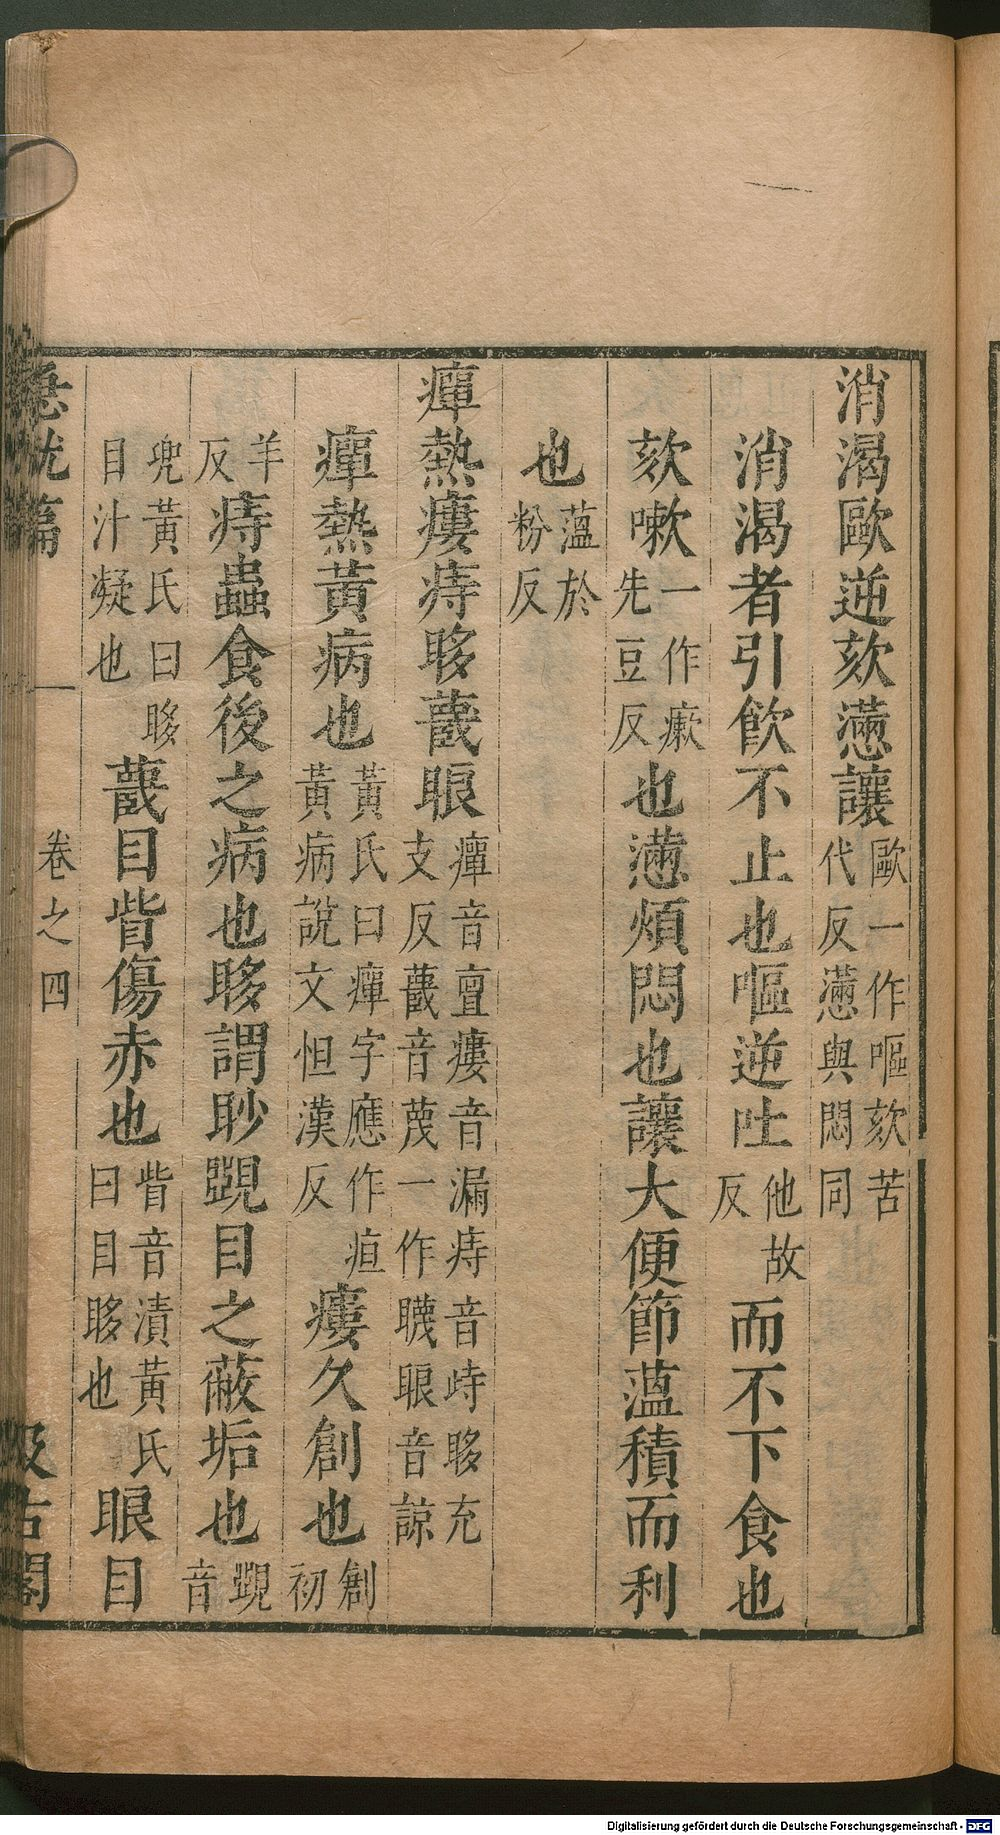 消渴歐逆欬懣讓歐一作嘔欬苦代反懣與悶同
消渴者引飲不止也嘔逆吐他故反而不下食也
欬嗽一作瘷先豆反也懣煩悶也讓大便節薀積而利
也薀於粉反
癉熱瘻痔眵䁾眼癉音亶瘻音漏痔音峙眵充支反䁾音蔑一作䁾眼音諒
癉熱黃病也黃氏曰癉字應作疸黃病說文怛漢反瘻久創也創初
羊反痔蟲食後之病也眵謂䀛覴目之蔽垢也覴音
兜黃氏曰眵目汁凝也䁾目眥傷赤也眥音漬黃氏曰目眵也眼目
急就篇
卷之四
汲古閣
Digitalisierung gefördert durch die Deutsche Forschungsgemeinschaft - DFG